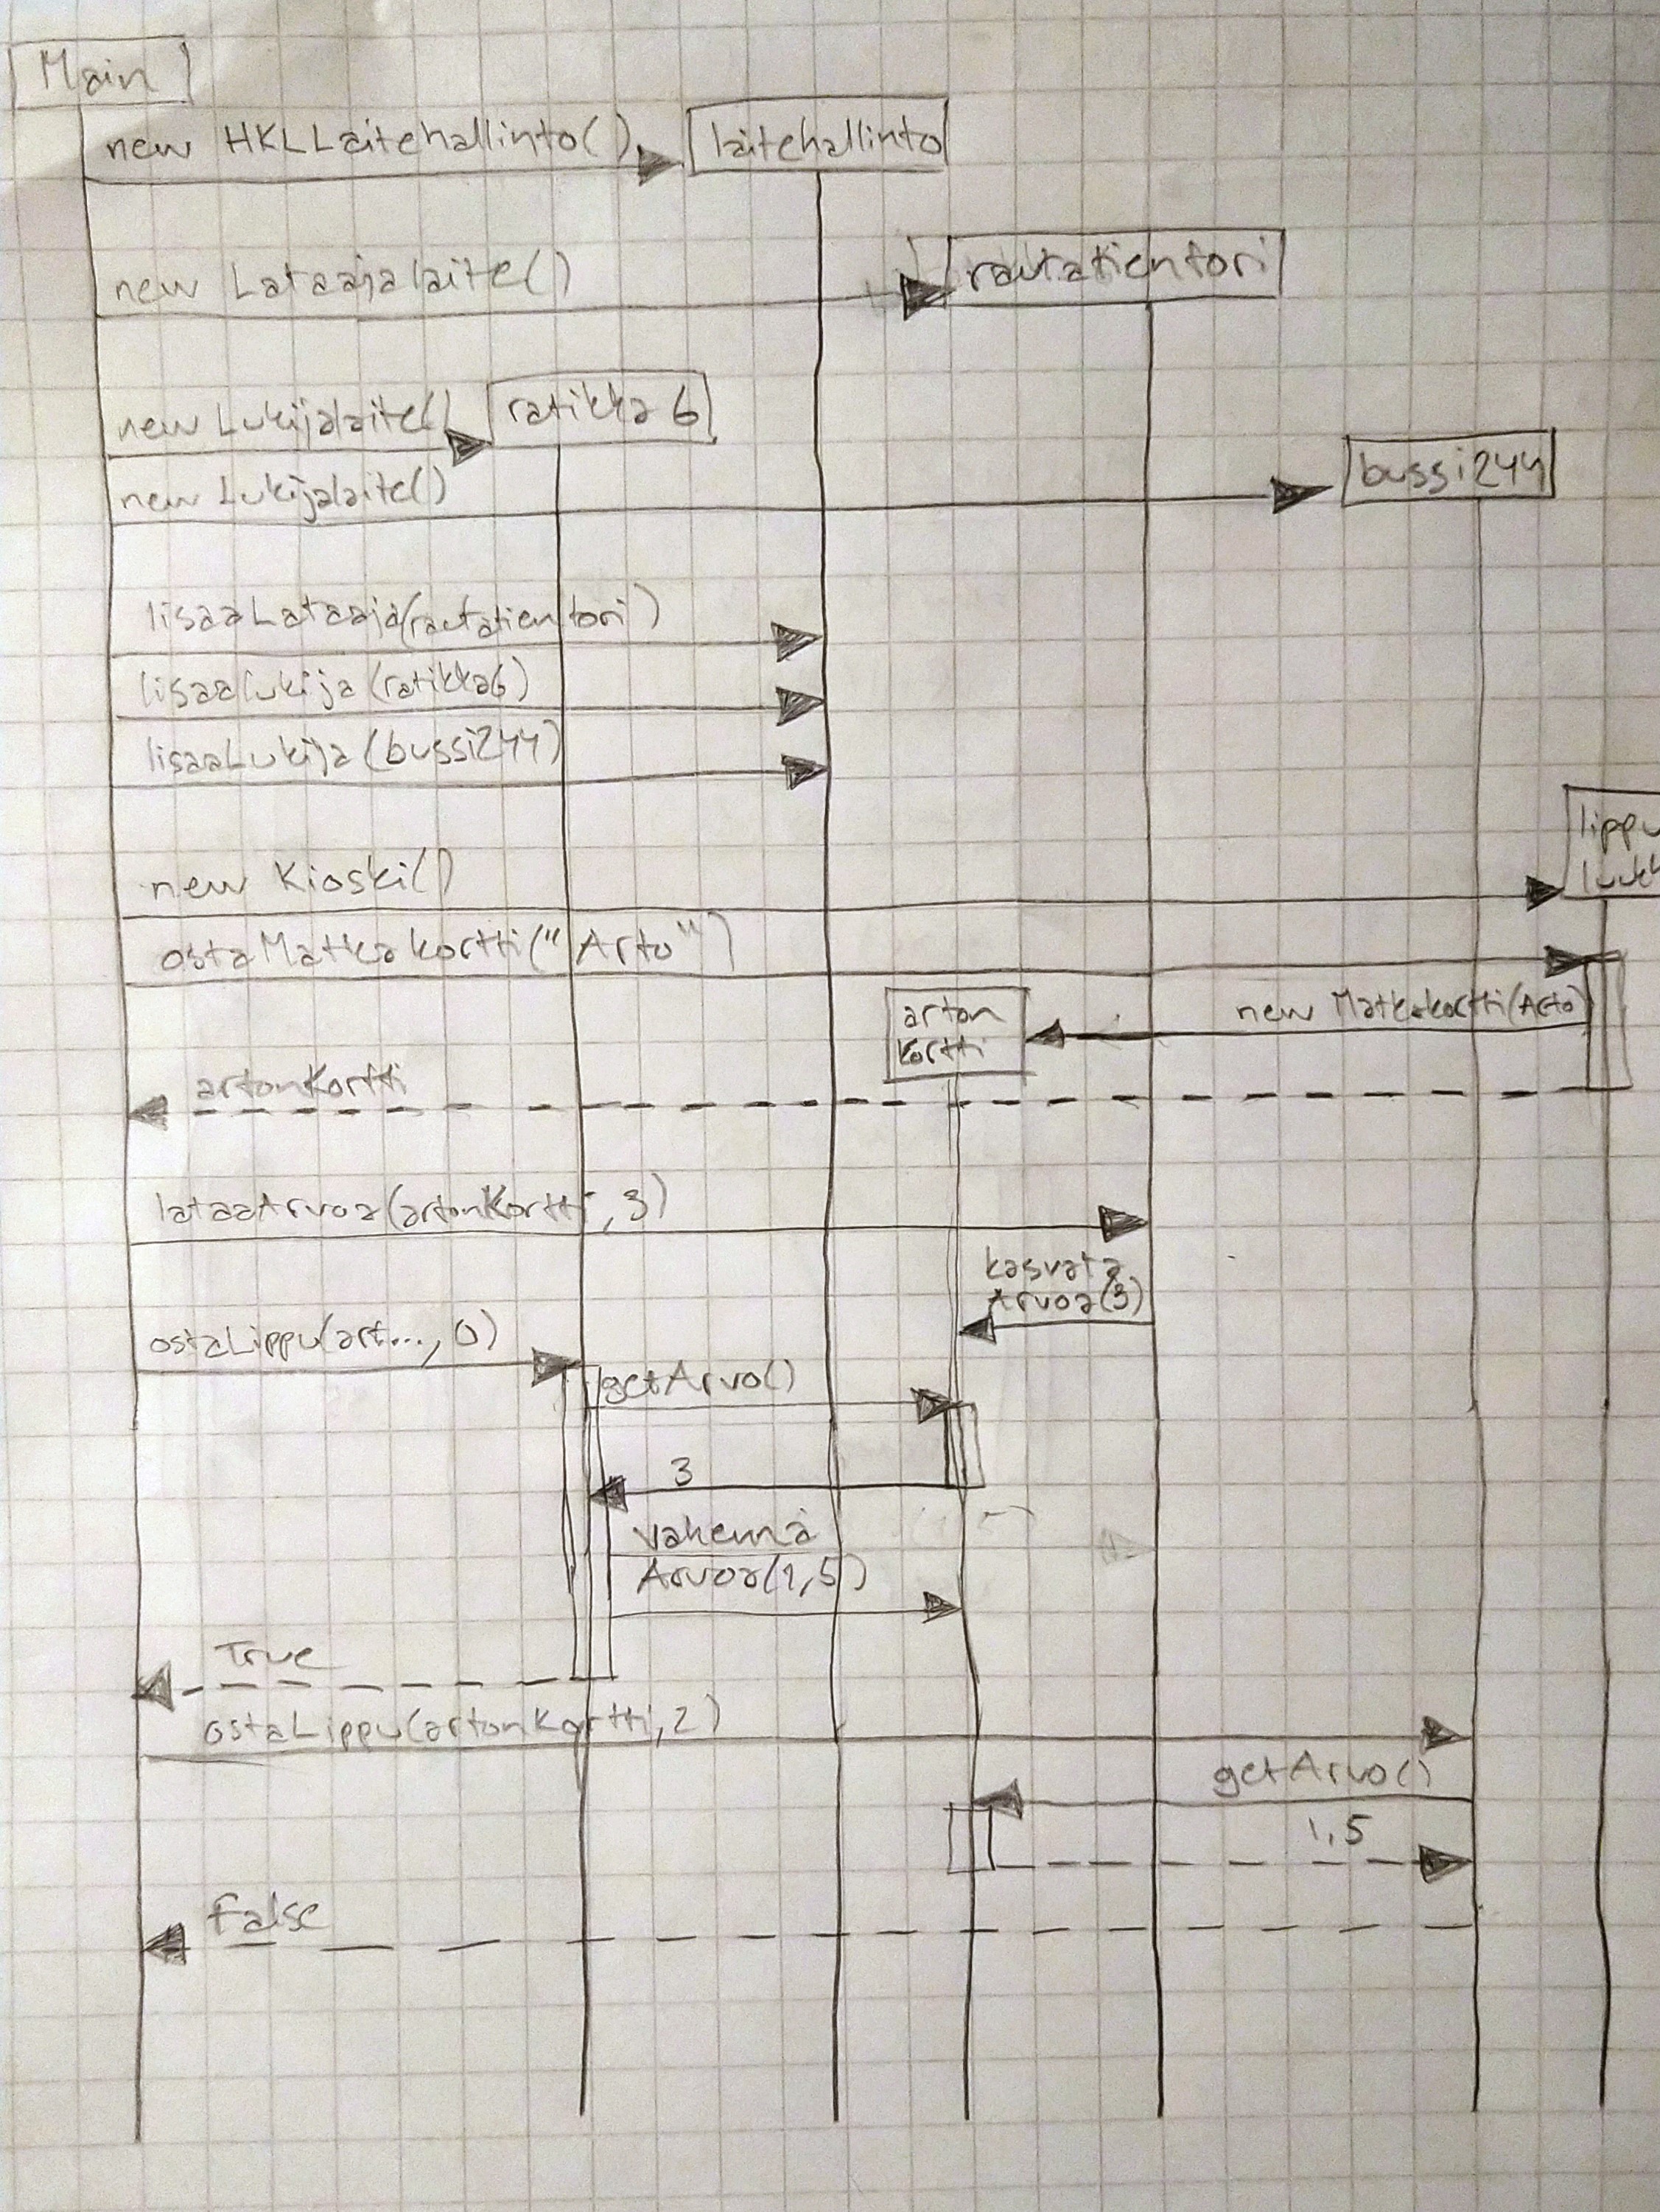 Main
new HKLLaitehallinto()
laitehallinto
new Lataajalaite()
rautatientori
new Lukijalaite()
ratikka 6
new Lukijalaite()
bussi244
lisaaLataaja(rautatientori)
lisaaLukija (ratikka6)
lisaaLukija (bussi244)
lippu
new Kioski()
ostaMatkakortti("Arto")
new Matkakortti(Arto)
arton
kortti
artonKortti
lataaArvoa(artonKortti, 3)
kasvata
Arvoa(3)
ostaLippu(art..., 0)
getArvo()
3
vahenna
Arvoa(1,5)
True
ostaLippu(artonKortti, 2)
getArvo()
1,5
False